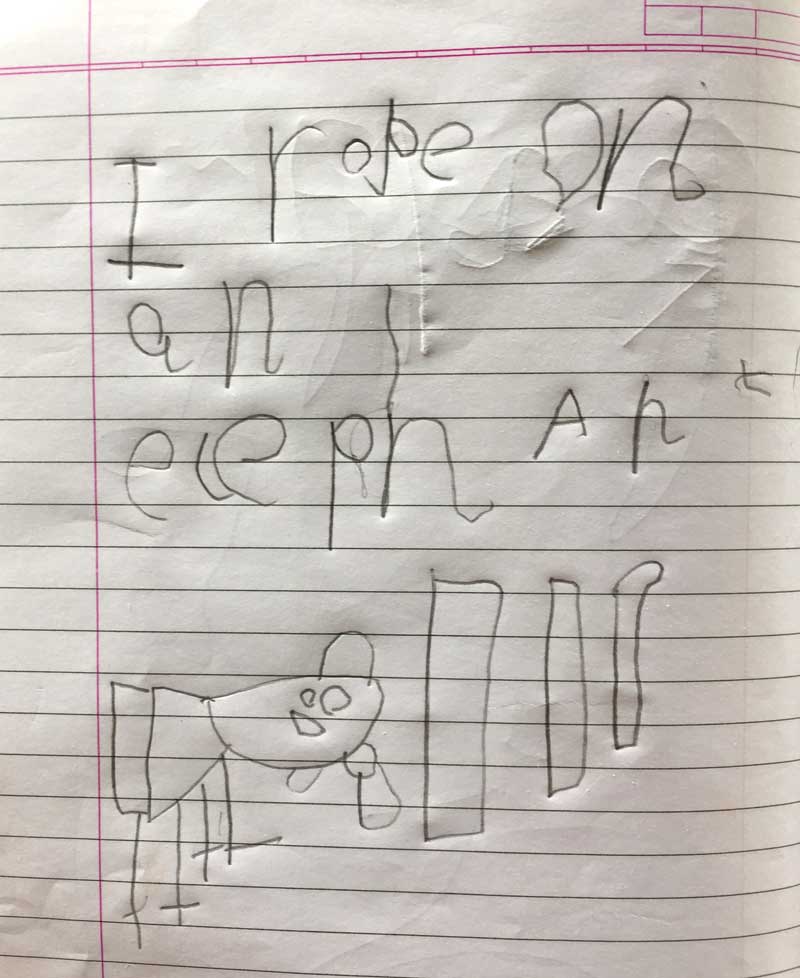 I rope on
an
eleph An t